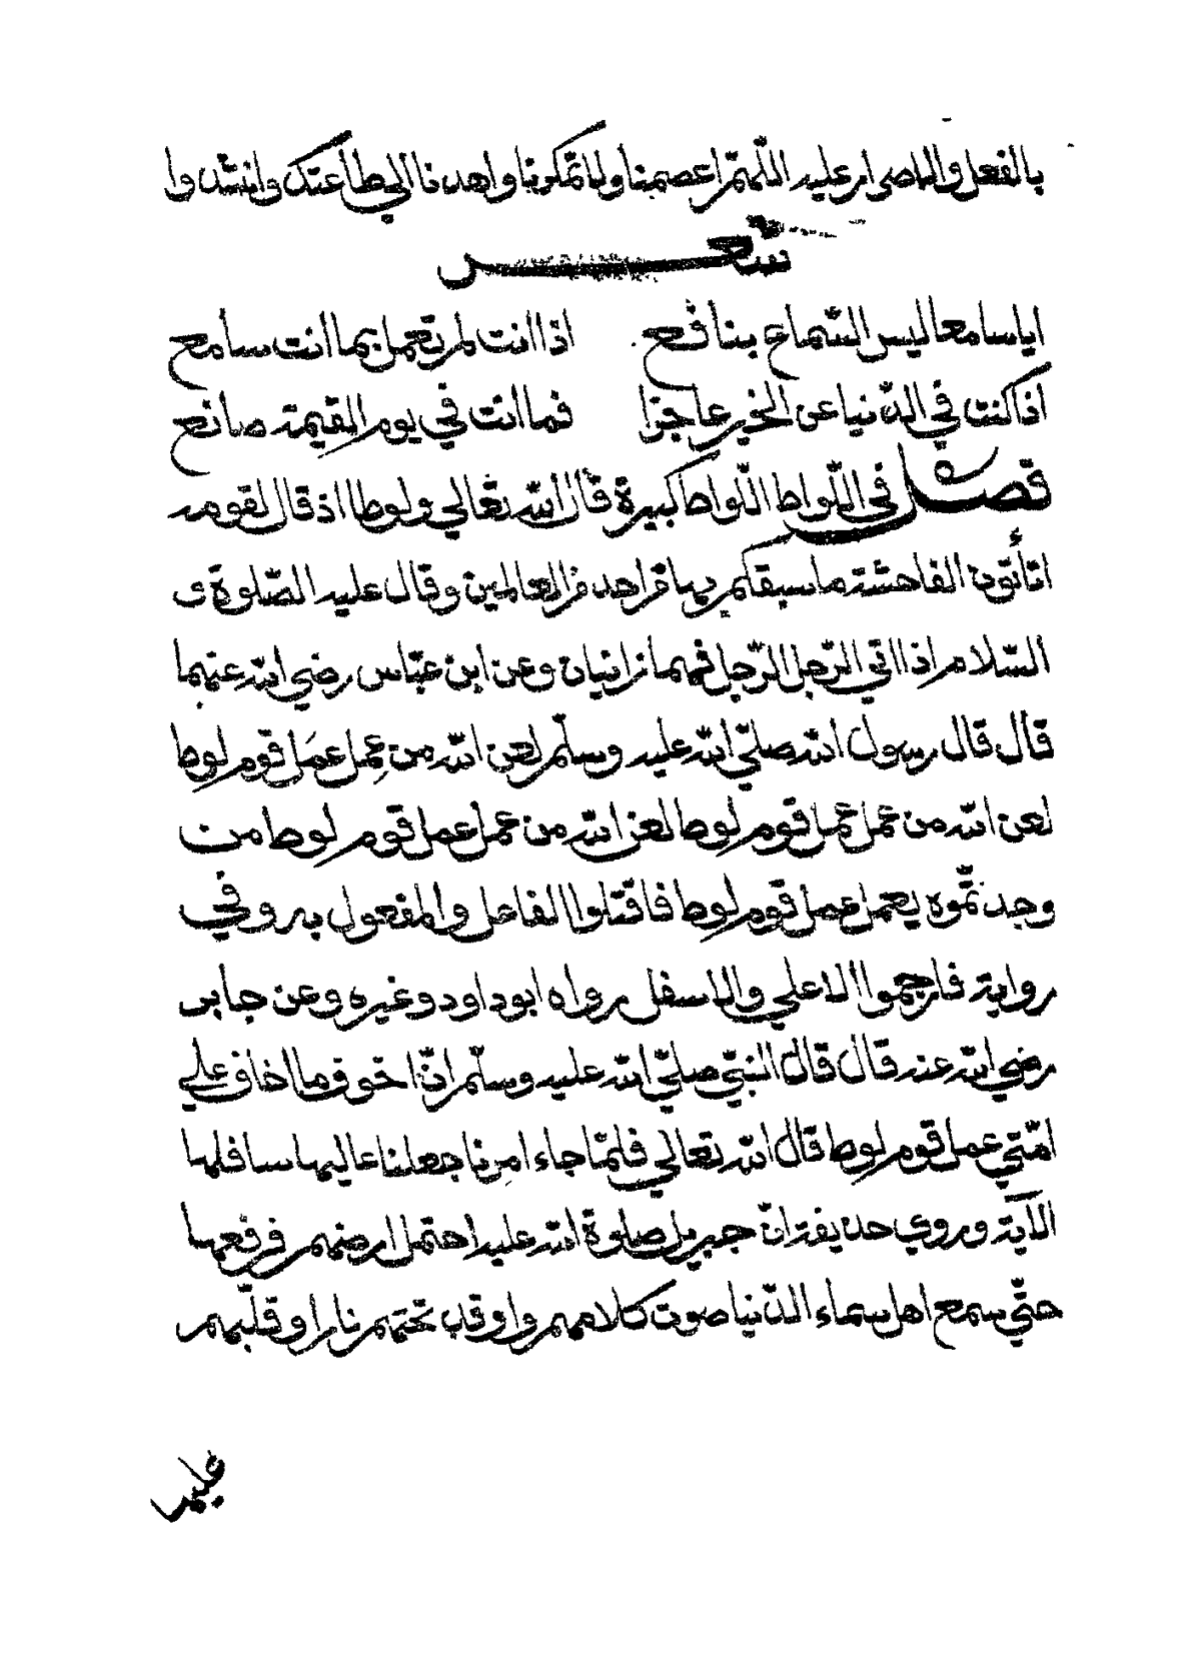 بالفعل والاصرار عليه اللّهمّ اعصمنا ولا تمكرنا واهدنا الي طاعتك وانشدوا
شعر
ايا سامعا ليس السّماع بنافع اذا انت لم تعمل بما انت سامع
اذا كنت في الدّنيا عن الخير عاجزا فما انت في يوم القيمة صانع
فصل في اللّواط اللّواط كبيرة قال الله تعالي ولوطا اذ قال لقومه
اتأتون الفاحشة ما سبقكم بها من احد من العالمين وقال عليه الصّلوة و
السّلام اذا اتي الرّجل الرّجل فهما زانيان وعن ابن عبّاس رضي الله عنهما
قال قال رسول الله صلّي الله عليه وسلّم لعن الله من عمل عمل قوم لوط
لعن الله من عمل عمل قوم لوط لعن الله من عمل عمل قوم لوط من
وجدتّموه يعمل عمل قوم لوط فاقتلوا الفاعل والمفعول به وفي
رواية فارجموا الاعلي والاسفل رواه ابو داود وغيره وعن جابر
رضي الله عنه قال قال النبيّ صلّي الله عليه وسلّم انّ اخوف ما اخاف علي
امّتي عمل قوم لوط قال الله تعالي فلمّا جاء امرنا جعلنا عاليها سافلها
الآية وروي حذيفة انّ جبريل صلوة الله عليه احتمل ارضهم فرفعها
حتّي سمع اهل سماء الدّنيا صوت كلامهم واوقد تحتهم نارا وقلّبهم
عليهم